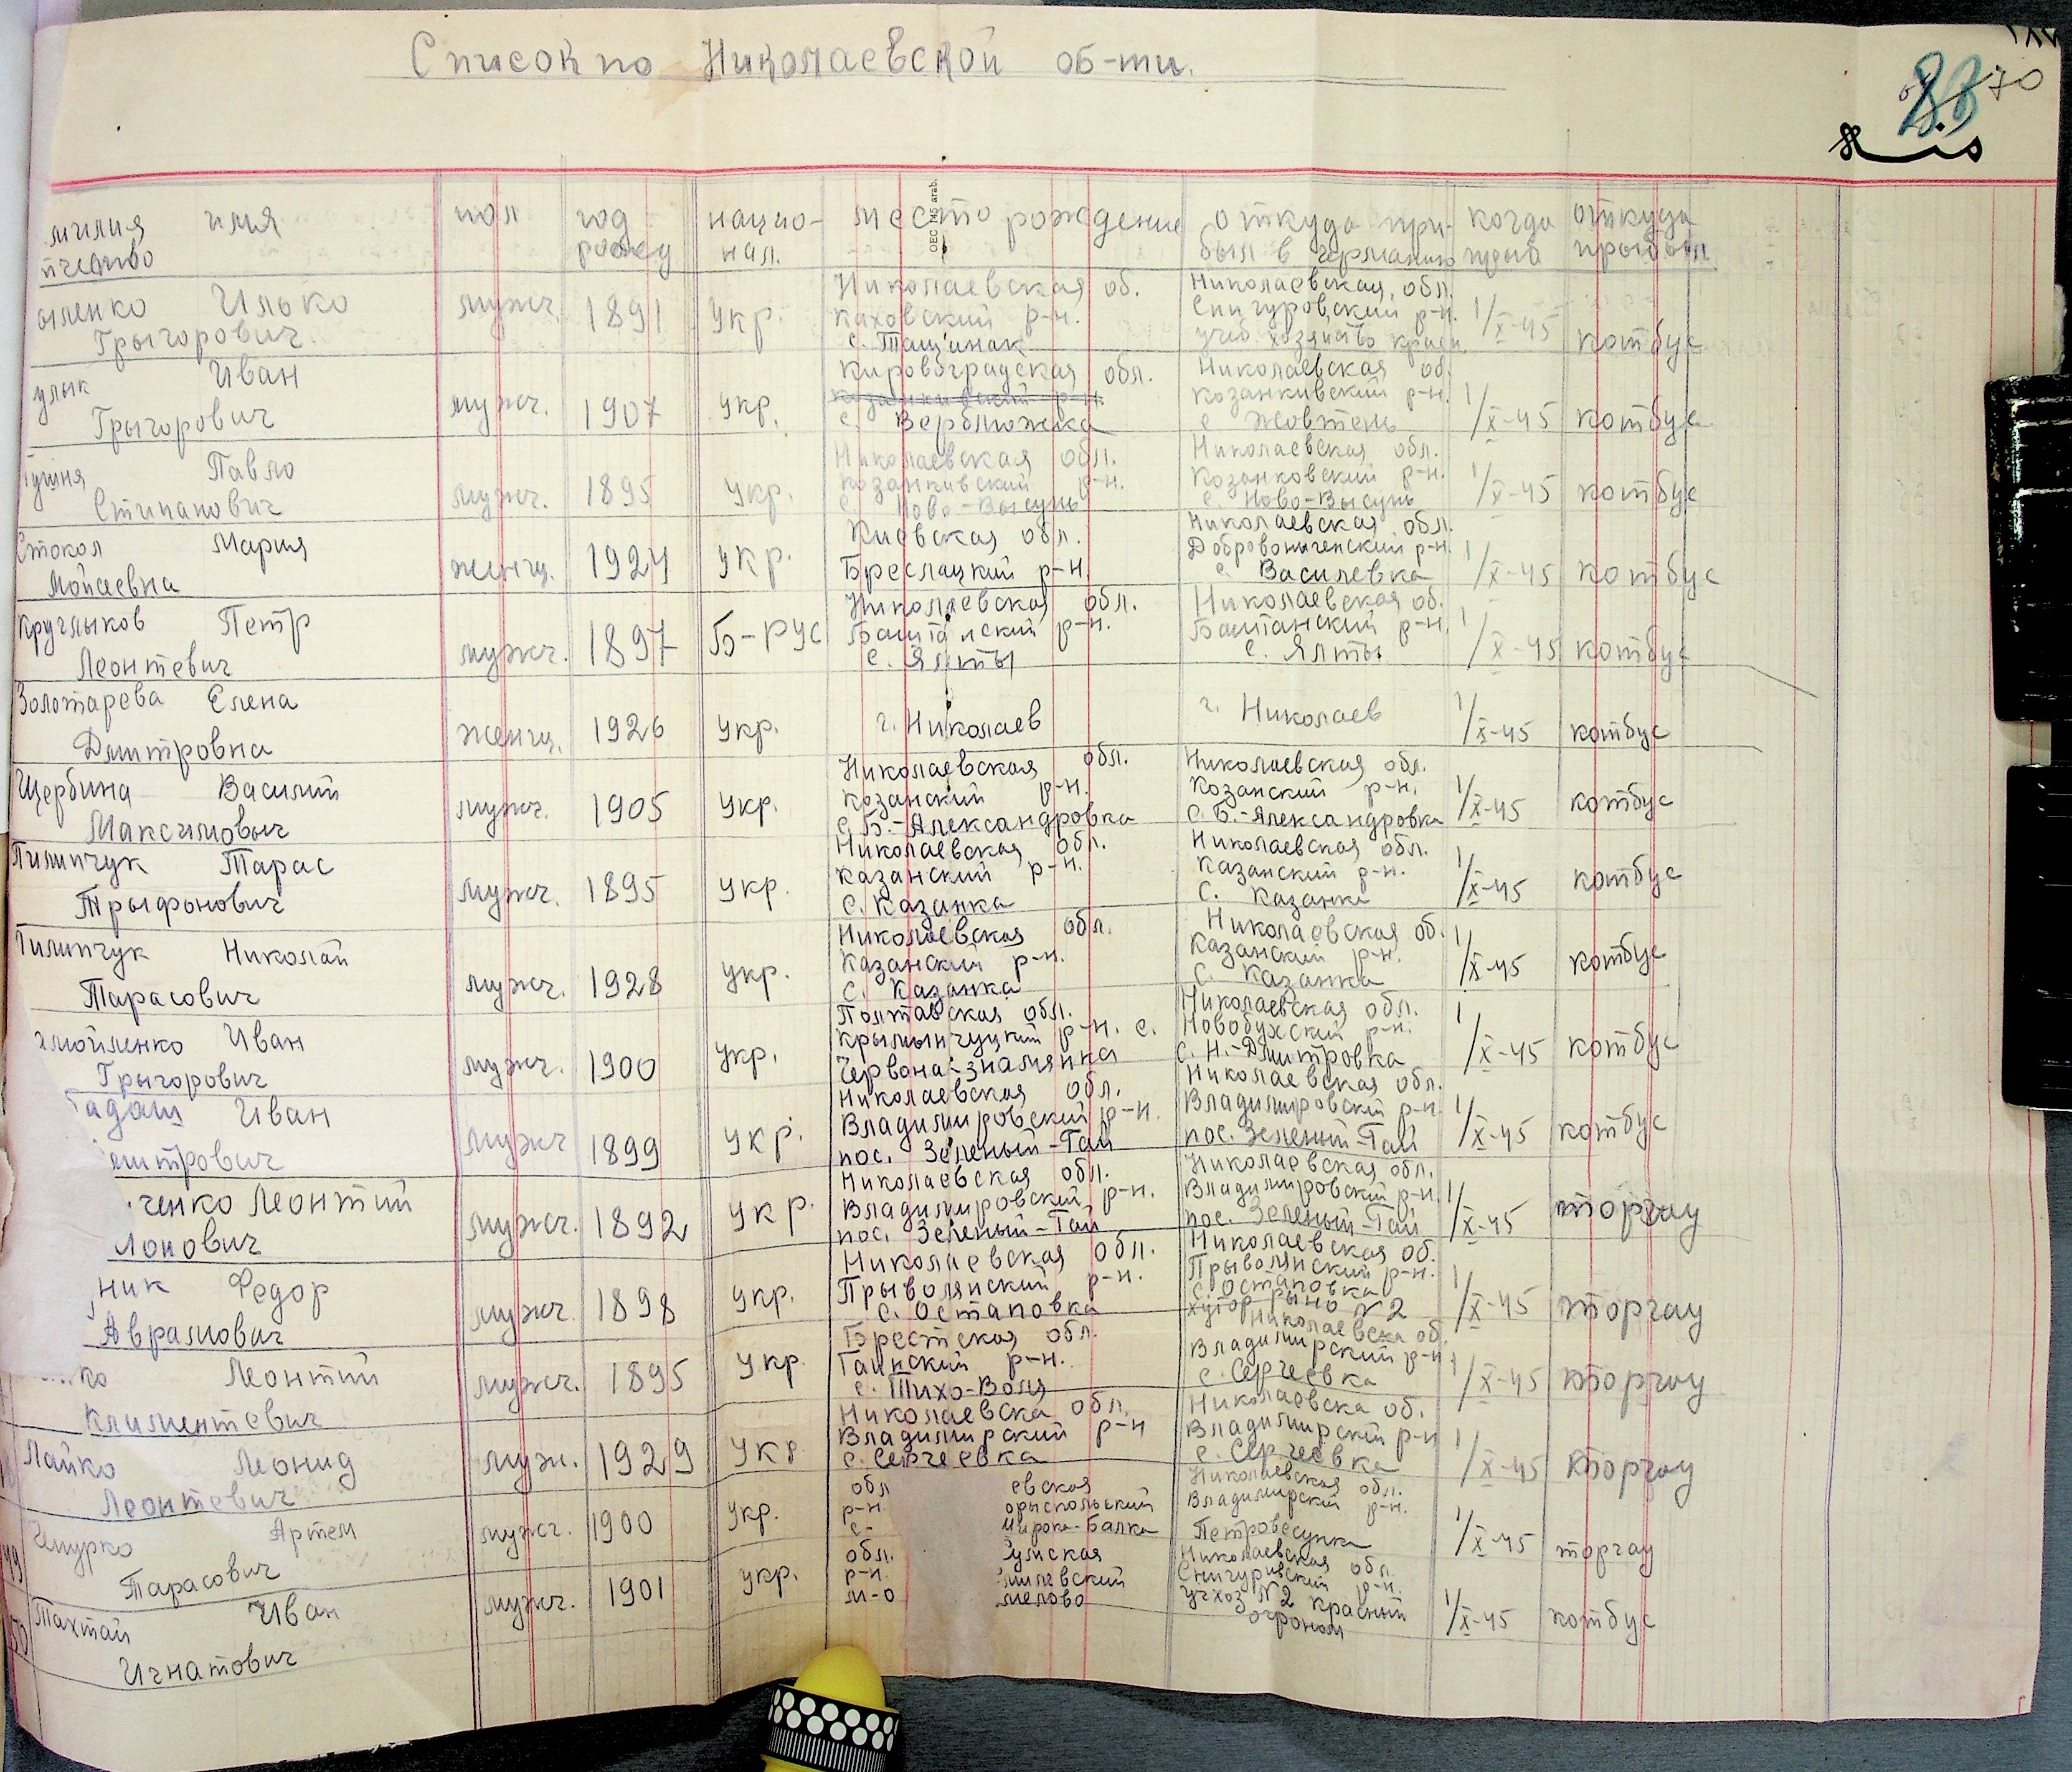 Список по Николаевской об-ти.
88 70
милия имя
пчество
пол
год
рожд
нацио-
нал.
место рождение
откуда при-
был в германию
когда
прыб
откуда
прыбыл
OEC 145 arab.
ыленко Илько
Грыгорович
мужч. 1891 укр.
Николаевская об.
каховский р-н.
с. Тащинак
Николаевская обл.
Снигуровский р-н.
учеб. хозяйство
1/X-45 котбус
улык Иван
Грыгорович
мужч. 1907 укр.
Кировоградская обл.
козанкивский р-н.
с. Верблюжка
Николаевская об.
козанкивский р-н.
с Жовтень
1/X-45 котбус
Павло
Стипанович
мужч. 1895 укр.
Николаевская обл.
козанкивский р-н.
с. Ново-Высунь
Николаевская обл.
Козанковский р-н.
с. Ново-Высунь
1/X-45 котбус
Стокол Мария
Мойсеевна
женщ. 1924 укр.
Киевская обл.
Бреслацкий р-н.
Николаевская обл.
р-н.
с. Василевка
1/X-45 котбус
Круглыков Петр
Леонтевич
мужч. 1897 Б-рус
Николаевская обл.
Баштанский р-н.
с. Ялты
Николаевская об.
Баштанский р-н.
с. Ялты
1/X-45 котбус
Золотарева Елена
Дмитровна
женщ. 1926 укр.
г. Николаев
г. Николаев
1/X-45 котбус
Щербина Василий
Максимовыч
мужч. 1905 укр.
Николаевская обл.
Козанский р-н.
с. Б.-Александровка
Николаевская обл.
Козанский р-н.
с. Б.-Александровка
1/X-45 котбус
Пилипчук Тарас
Трыфонович
мужч. 1895 укр.
Николаевская обл.
Казанский р-н.
с. Казанка
Николаевская обл.
Казанский р-н.
с. Казанка
1/X-45 котбус
Пилипчук Николай
Тарасович
мужч. 1928 укр.
Николаевская обл.
Казанский р-н.
с. Казанка
Николаевская об.
Казанский р-н.
с. Казанка
1/X-45 котбус
амойленко Иван
Грыгорович
мужч. 1900 укр.
Полтавская обл.
Крымынчуцкий р-н. с.
Червона-знамянка
Николаевская обл.
Новобужский р-н.
с. Н.-Дмитровка
1/X-45 котбус
адаш Иван
митрович
мужч 1899 укр.
Николаевская обл.
Владимировский р-н.
пос. Зеленый-Гай
Николаевская обл.
Владимировский р-н.
пос. Зеленый-Гай
1/X-45 котбус
ченко Леонтий
лонович
мужч. 1892 укр.
Николаевская обл.
Владимировский р-н.
пос. Зеленый-Гай
Николаевская обл.
Владимировский р-н.
пос. Зеленый-Гай
1/X-45 торгау
ник Федор
Аврамович
мужч. 1898 укр.
Николаевская обл.
Прыволянский р-н.
с. Остаповка
Николаевская об.
Прыволянский р-н.
с. Остаповка
хутор рыно N2
1/X-45 торгау
ко Леонтий
Климентевич
мужч. 1895 укр
Брестская обл.
Гаинский р-н.
с. Тихо-Воля
Николаевска об.
Владимирский р-н
с. Сергеевка
1/X-45 торгау
Лайко Леонид
Леонтевич
муж. 1929 укр
Николаевска обл.
Владимирский р-н
с. Сергеевка
Николаевска об.
Владимирский р-н
с. Сергеевка
1/X-45 торгау
49 Чмурко Артем
Тарасович
мужч. 1900 укр.
обл евская
р-н. орыспольский
с- ырока-балка
Николаевская обл.
Владимирский р-н.
1/X-45 торгау
50 Тахтай Иван
Игнатович
мужч. 1901 укр.
обл. умская
р-н. милевский
м-о мелово
Николаевская обл.
Снигуривский р-н.
учхоз N2 красный
огроном
1/X-45 котбус